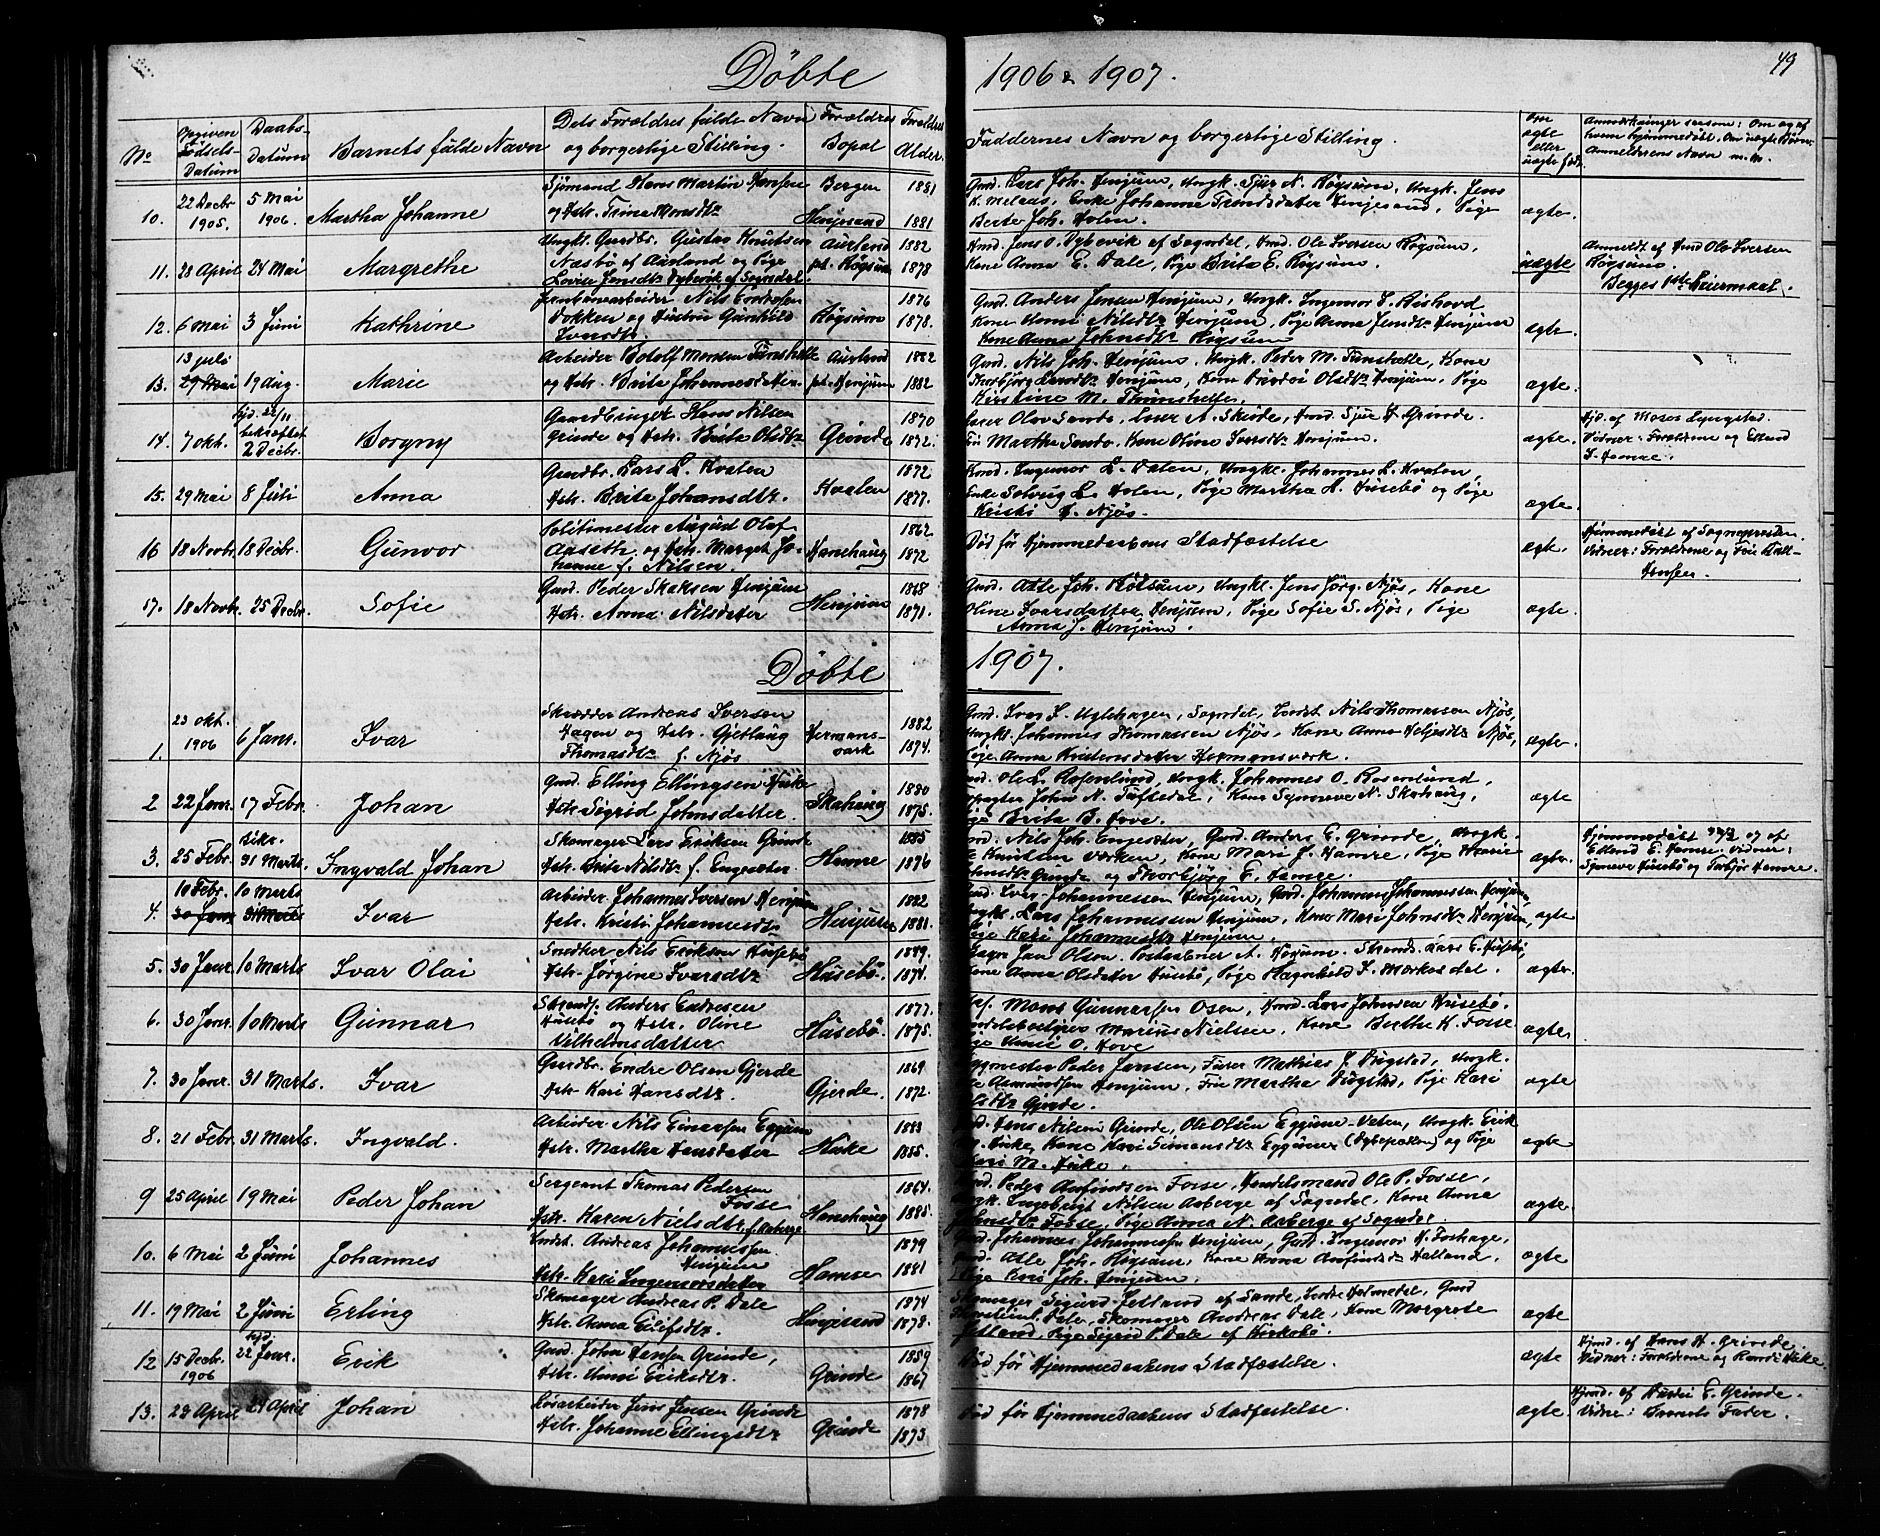 Döbte
1906 & 1907.
49
No
Opgiven Födsels-Datum
Daabs-Datum
Barnets fulde Navn
Dets Forældres fulde Navn og borgerlige Stilling.
Forældres Bopæl
Forældres Alder.
Faddernes Navn og borgerlige Stilling.
Om ægte eller uægte født.
10. 22 Decbr 1905. 5 Mai 1906. Martha Johanne
Sjömand Hans Martin Hansen
og Hstr. Trine Monsdtr
Bergen
Henjesand
1881
1881
Gmd. Lars Joh. Henjum, Ungk. Sjur N. Røysum, Ungk. Jens
Enke Johanne Trondsdatter Henjesand, Pige
Berte Joh. Holen.
ægte.
11. 28 April 24 Mai Margrethe
Ungkl. Gardbr. Gustav Knutsen
Næsbø af Aurland og Pige
Lovise Jensdtr Dybevik af Sogndal.
Aurland
Røysum
1882
1878
Gmd. Jens O. Dybevik af Sogndal, Gmd. Ole Iversen Røysum,
Kone Anna E. Dale, Pige Brita E. Røysum.
uægte
Anmeldt af Gmd Ole Iversen
Røysum.
Begges 1ste Leiermaal.
12. 6 Mai 3 Juni Kathrine
Jernbanearbeider Nils Endresen
Dokken og Hustru Gunhild
Iversdtr.
Røysum
1876
1878.
Gmd. Anders Jensen Henjum, Ungk. Ingemor
Kone Nilsdtr Henjum, Pige Anna Jensdtr Henjum
Kone Anna Johnsdtr Røysum
ægte.
13. 13 Juli 29 Mai 19 Aug. Marie
Arbeider Botolf Monsen Tunshelle
og Hstr. Brita Johannesdatter.
Aurland
pt. Henjum
1882
1882
Gmd. Nils Joh. Henjum, Ungk. Peder M. Tunshelle, Kone
Henjum, Kone Olsdtr Henjum. Pige
Kirstine M. Thunshelle.
ægte.
14. 7 Okt. Hjd. 22/11 bekræftet 2 Decbr. Borgny
Gaardbruger Hans Nilsen
Grinde og Hstr. Brita Olsdtr
Grinde
1870
1872.
Gmd. Sjur H. Grinde.
Kone Oline Iversdtr Henjum.
ægte.
Hjd. af Moses Lyngstad.
Vidner: Forældrene og Edlend
I. Hamre.
15. 29 Mai 8 Juli Anna
Gardbr. Lars L. Kvalen
Hstr. Brita Johansdtr.
Kvalen
1872
1877.
Gmd. Ingemor L. Dalen, Ungkl. Johannes L. Kvalen,
Enke Solvug L. Holen, Pige Martha A. Husebø og Pige
Kristi H. Njøs.
ægte.
16 18 Novbr. 18 Decbr. Gunvor
Politimester August Olaf
Aaseth og Hstr. Marget Jo-
hanne f. Nilsen.
Hanehaug
1862
1872
Död før Hjemmedaabens Stadfæstelse
ægte.
Hjemmedöbt af Sognepresten.
Vidner: Forældrene og
17. 18 Novbr. 25 Decbr. Sofie
Gmd. Peder Skaksen Henjum
Hstr. Anna Nilsdatter
Henjum
1868
1871.
Gmd. Atle Joh. Røisum, Ungkl. Jens Jörg. Njøs, Kone
Oline Ivarsdatter Henjum, Pige Sofie S. Njøs, Pige
Anna J. Henjum.
ægte.
Döbte
1907.
1. 23 Okt. 1906 6 Janr. Ivar
Skrædder Andreas Iversen
Hagen og Hstr. Gjertlaug
Thomasdtr f. Njøs
Hermans-
værk
1882
1874.
Gmd. Iver I. Uglehagen, Sogndal, Nils Thomassen Njøs,
Ungkl. Johannes Thomassen Njøs, Kone Anna Njøs,
Pige Anna Kristensdatter Hermansværk.
ægte.
2 22 Janr. 17 Febr. Johan
Gmd. Elling Ellingsen Huke
Hstr. Sigrid Johnsdatter.
Skahaug
1880
1875.
Gmd. Ole L. Rosenlund, Ungk. Johannes O. Rosenlund,
Forpagter John N. Tuftedal, Kone Synneve N. Skahaug,
Pige Brita B. Hove.
ægte
3. 25 Febr. 31 Marts. Ingvald Johan
Skomager Lars Eriksen Grinde
Hstr. Brita Nilsdtr f. Engesæter
Hamre
1885
1876
Gmd. Nils Joh. Engesæter, Gmd. Anders E. Grinde, Ungk.
Kristian Værken, Kone Mari J. Hamre, Pige Marie
Grinde og Thorbjørg E. Hamre.
ægte.
Hjemmedöbt og af
Edlend E. Hamre. Vidner:
Synneve Husebø og Torbjør Hamre.
4. 10 Febr. 30 Janr 10 Marts 31 Marts Ivar
Arbeider Johannes Iversen Henjum
Hstr. Kristi Johannesdtr
Henjum
1882
1881.
Gmd. Iver Johannessen Henjum, Gmd. Johannes Johannessen Henjum,
Ungkl. Lars Johannessen Henjum, Kone Mari Johnsdtr Henjum,
Pige Kari Johannesdtr Henjum.
ægte
5. 30 Janr. 10 Marts Ivar Olai
Snedker Nils Eriksen Husebø
Hstr. Jörgine Ivarsdtr
Husebø.
1849.
1874.
Jan Olsen. Postaabner A. Røysum. Strands. Lars E. Husebø,
Kone Anna Olsdatter Husebø, Pige Ragnhild I. Markesdal.
ægte.
6. 30 Janr. 10 Marts Gunnar
Strands. Anders Endresen
Husebø og Hstr. Oline
Vilhelmsdatter
Husebø.
1877.
1875.
Mons Gunnarsen Osen, Gmd. Lars Johnsen Husebø.
Handelsbestyrer Marius Nielsen, Kone Berthe K. Fosse
Pige O. Hove
ægte.
7. 30 Janr. 31 Marts. Ivar
Gardbr. Endre Olsen Gjerde
Hstr Kari Hansdtr.
Gjerde.
1869
1872.
Byggmester Peder Jansen, Ungk.
Ole Asmundsen Henjum, Fru Martha Pige Kari
Olsdtr Gjerde.
ægte
8. 21 Febr. 31 Marts. Ingvald.
Arbeider Nils Einarsen Eggum
Hstr. Martha Hansdatter
Huke
1883
1885.
Gmd. Hans Nilsen Grinde, Ole Olsen Eggum-Veten, Ungk. Erik
M. Huke, Kone Kari Simonsdtr Eggum og Pige
Kari M. Huke.
ægte
9 25 April 19 Mai Peder Johan
Sergeant Thomas Pedersen
Fosse
Hstr. Karen Nielsdtr f. Aaberge
Hanehaug
1864.
1885.
Gmd. Peder Anfindsen Fosse, Handelsmand Ole P. Fosse,
Ungk. Ingebrigt Nilsen Aaberge af Sogndal, Kone Anna
Johnsdtr Fosse, Pige Anna N. Aaberge af Sogndal.
ægte.
10. 6 Mai 2 Juni Johannes
Andreas Johannessen
Henjum
Hstr. Kari Ingemorsdatter
Hamre
1879
1881
Gmd. Johannes Johannessen Henjum, Gmd. Ingemor H. Foshage,
Gmd. Atle Joh. Røysum, Kone Anna Anfindsdtr Hatland,
Pige Kari Joh. Henjum.
ægte
11. 19 Mai 2 Juni Erling
Skomager Andreas P. Dale
Hstr. Anna Eilifsdtr.
Henjesand
1874
1878.
Skomager Sigurd Jetland af Sande, Holmedal, Gmd
Dale, Skomager Andreas Dale, Kone Margrete
Jetland, Pige Sigrid P. Dale af Kirkebø.
ægte
12 15 Decbr. 1906 Hjd. 22 Janr. Erik
Gmd. John Hansen Grinde,
Hstr. Anni Eriksdtr.
Grinde
1859
1867
Död før Hjemmedaabens Stadfæstelse.
ægte
Hjmd. af Hans H. Grinde.
Vidner: Forældrene og Randi Huke.
13. 28 April 29 April Johan
Løsarbeider Jens Jensen Grinde
Hstr. Johanne Ellingsdtr
Grinde
1878
1873
Död før Hjemmedaabens Stadfæstelse.
ægte
Hjmd. af E. Grinde.
Vidne: Barnets Fader.